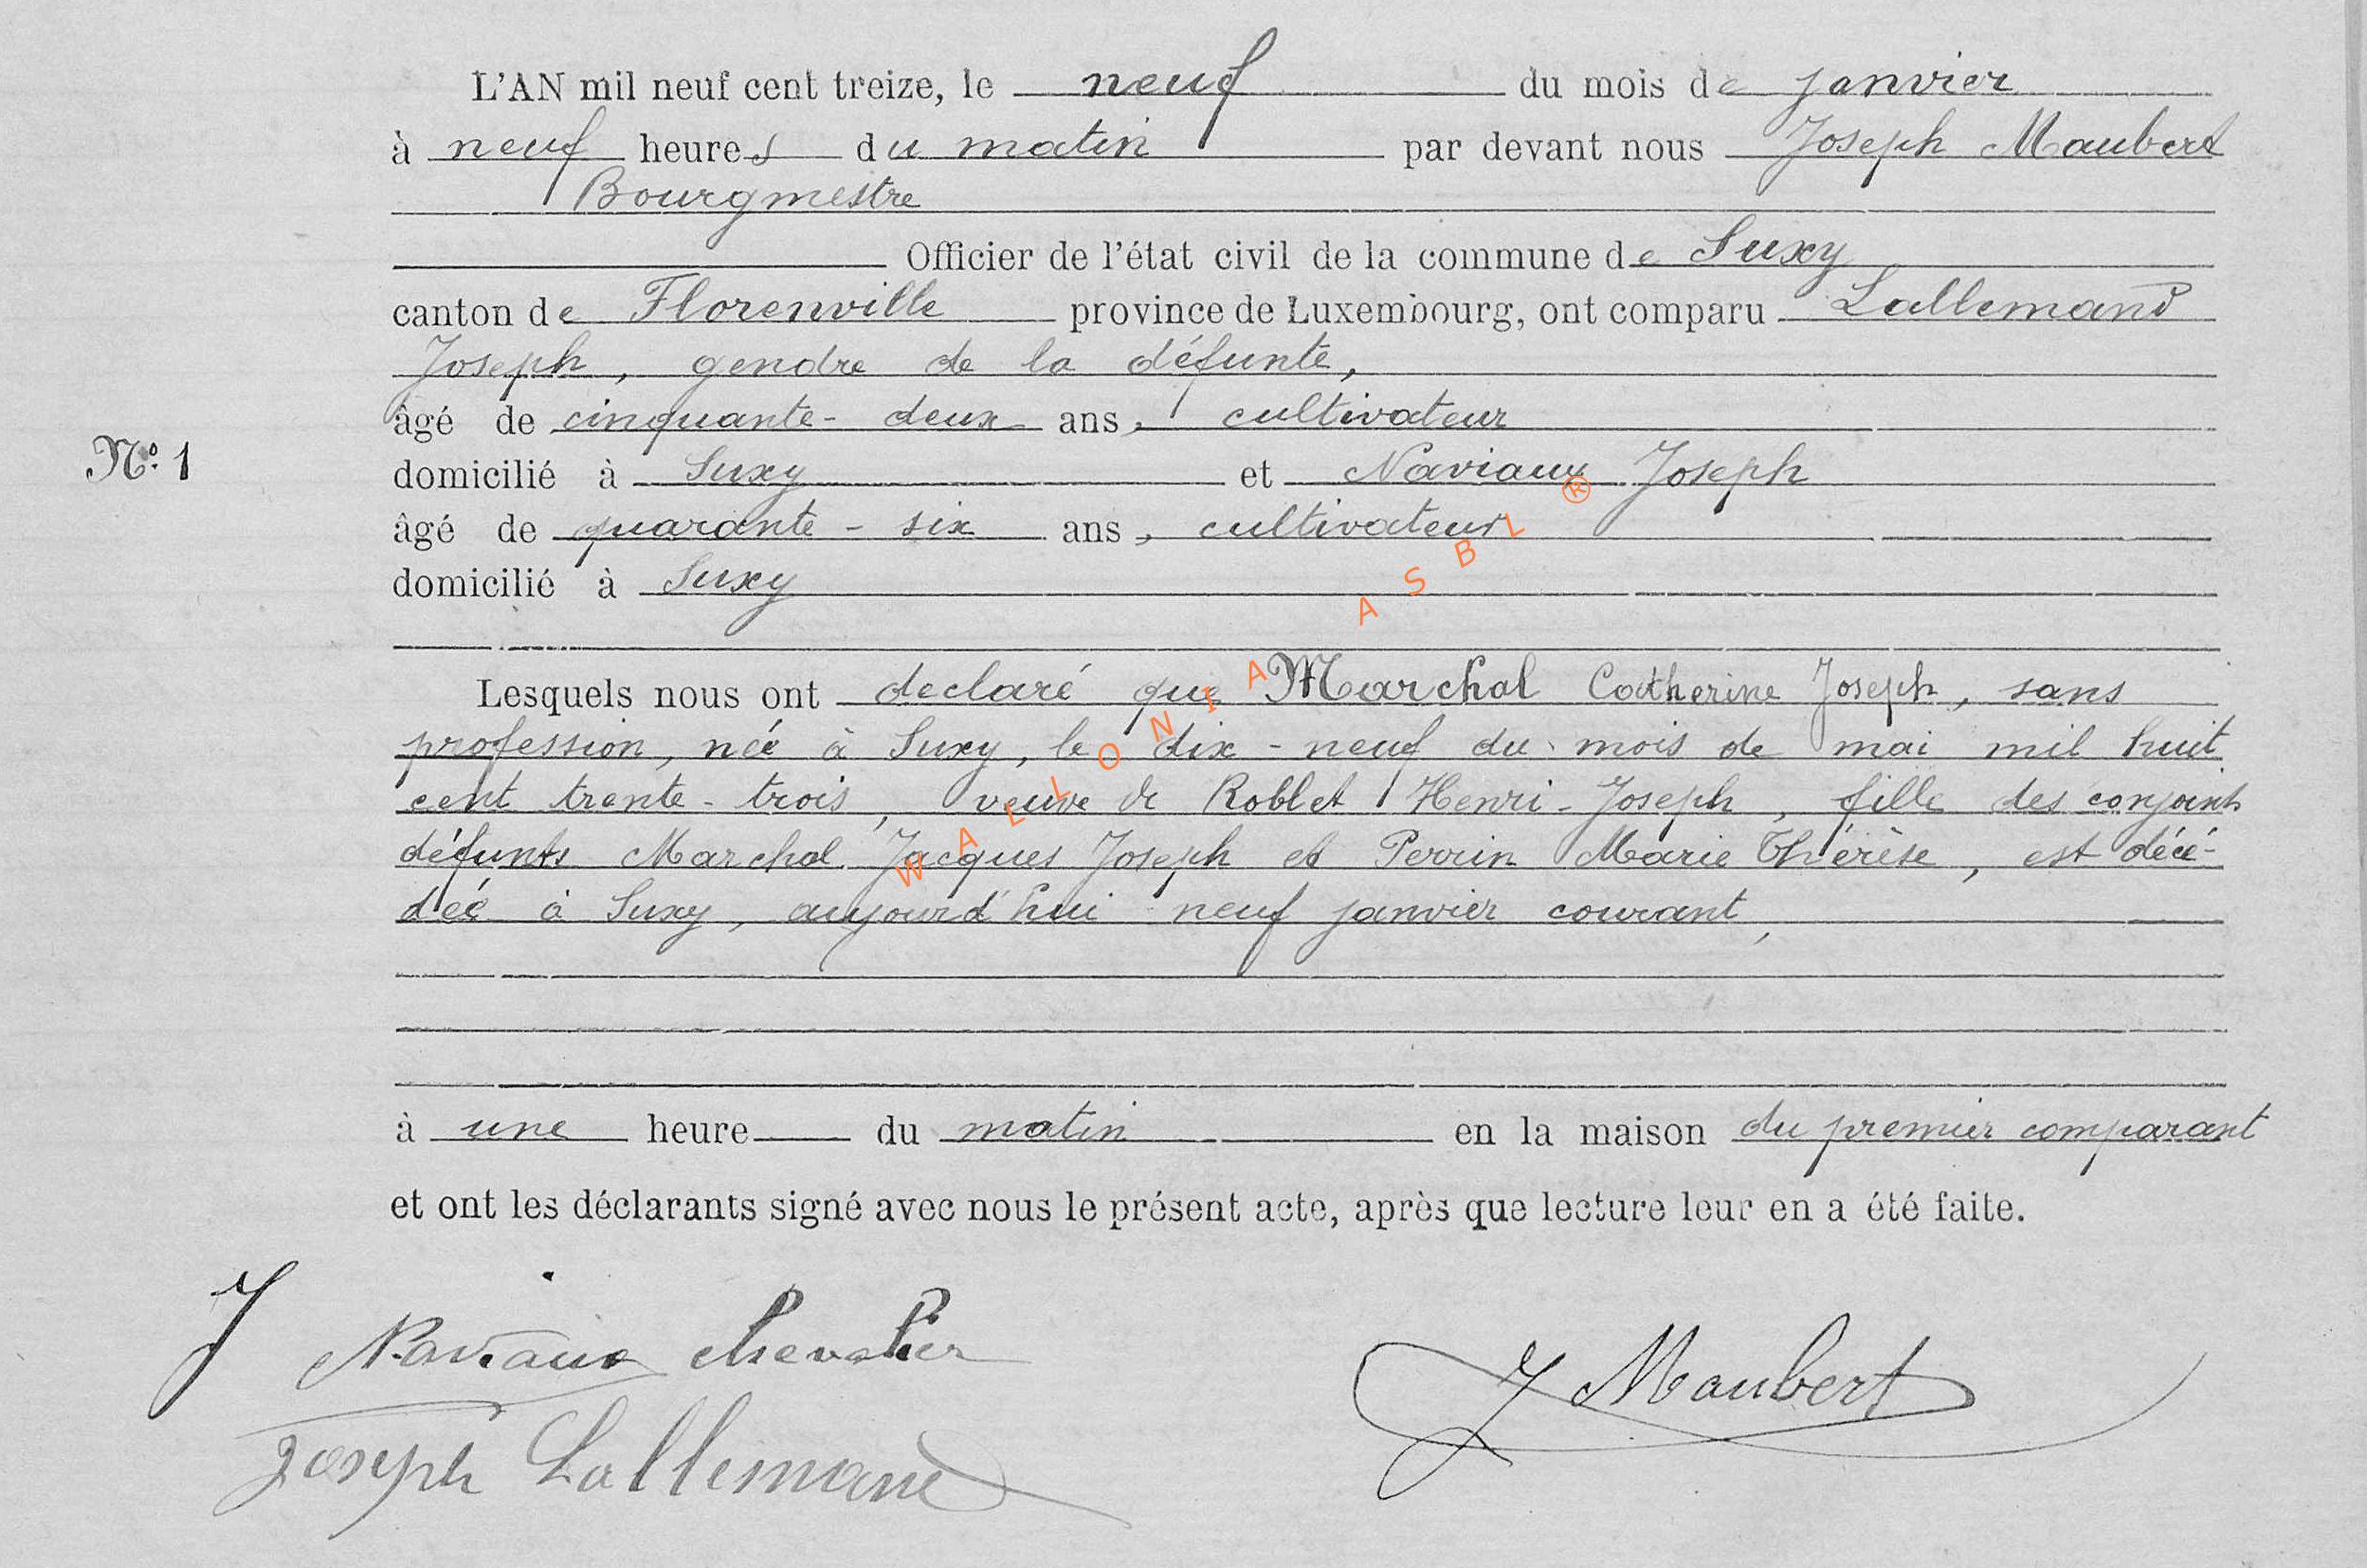 L'AN mil neuf cent treize, le neuf du mois de janvier
à neuf heures du matin par devant nous Joseph Maubert
Bourgmestre
Officier de l'état civil de la commune de Suxy
canton de Florenville province de Luxembourg, ont comparu Lallemand
Joseph, gendre de la défunte,
âgé de cinquante-deux ans, cultivateur
N°. 1
domicilié à Suxy et Naviaux Joseph
âgé de quarante-six ans, cultivateur
domicilié à Suxy
Lesquels nous ont declaré que Marchal Catherine Joseph, sans
profession, née à Suxy, le dix-neuf du mois de mai mil huit
cent trente-trois, veuve de Roblet Henri-Joseph, fille des conjoints
défunts Marchal Jacques Joseph et Perrin Marie Thérèse, est décé-
dée à Suxy, aujourd'hui neuf janvier courant,
à une heure du matin en la maison du premier comparant
et ont les déclarants signé avec nous le présent acte, après que lecture leur en a été faite.
J Naviaux Chevalier
J Maubert
Joseph Lallemand
WALLONIA ASBL ®